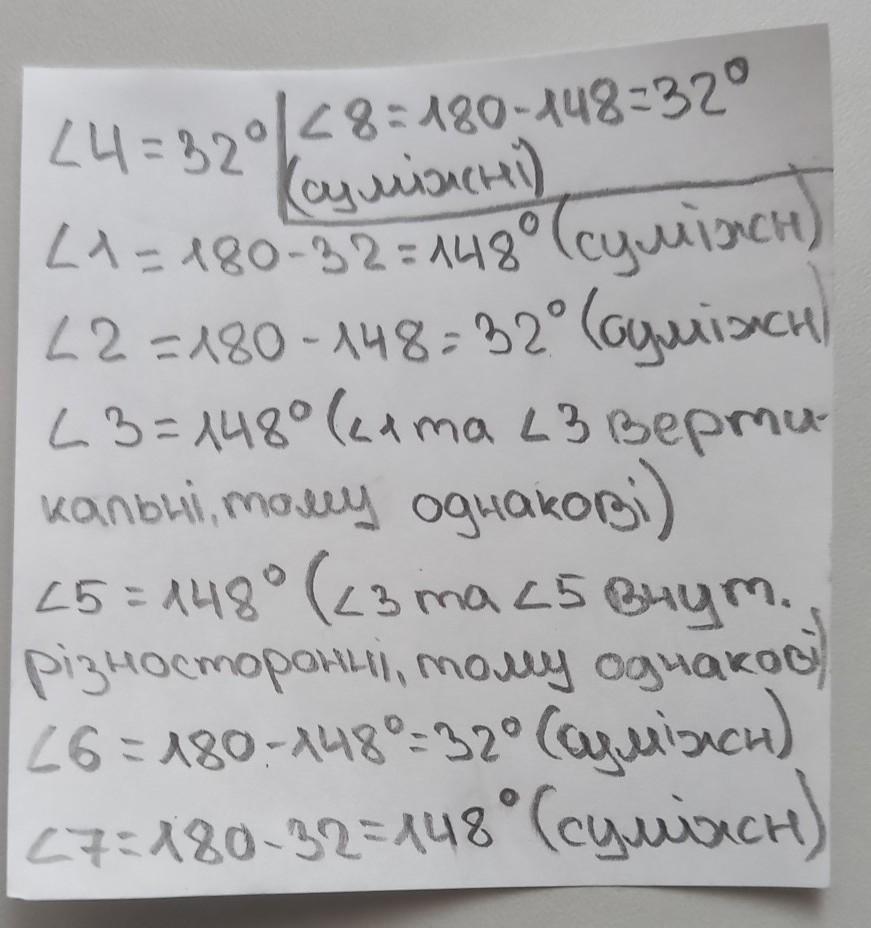 ∠4=32°
∠8=180-148=32°
(суміжні)
∠1=180-32=148° (суміжн)
∠2=180-148=32° (суміжн)
∠3=148° (∠1 та ∠3 верти-
кальні, тому однакові)
∠5=148° (∠3 та ∠5 внут.
різносторонні, тому однакові)
∠6=180-148°=32° (суміжн)
∠7=180-32=148° (суміжн)